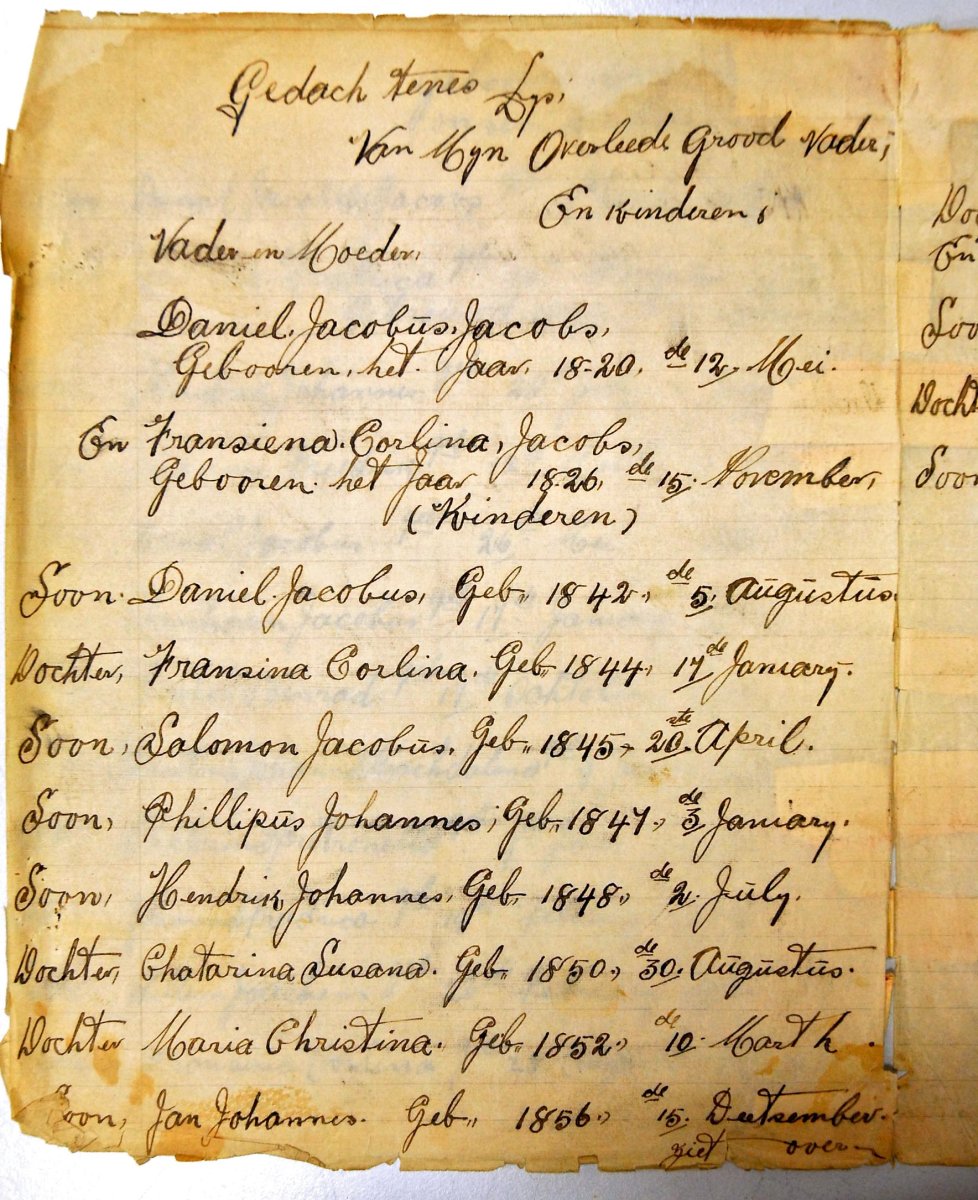 Gedach tenes Lys,
Van Myn Overleede Grood Vader,
En kinderen,
Vader en Moeder,
Daniel. Jacobus. Jacobs,
Gebooren, het. Jaar, 18-20, de 12, Mei.
En Fransiena. Corlina, Jacobs,
Gebooren. het Jaar 1826, de 15. November,
(Kinderen)
Soon. Daniel. Jacobus, Geb,, 1842,, de 5, Augustus.
Dochter, Fransina Corlina. Geb,, 1844,, 17de January.
Soon, Salomon Jacobus. Geb,, 1845,, 20ste April.
Soon, Phillipus Johannes, Geb,, 1847,, de 3 Janiary.
Soon, Hendrik Johannes, Geb,, 1848,, de 2. July.
Dochter, Chatarina Susana. Geb,, 1850,, de 30. Augustus.
Dochter Maria Christina. Geb,, 1852,, de 10. Marth.
Soon, Jan Johannes. Geb,, 1856,, de 15. Deetsember.
ziet over
En
Soon
Docht
Soon